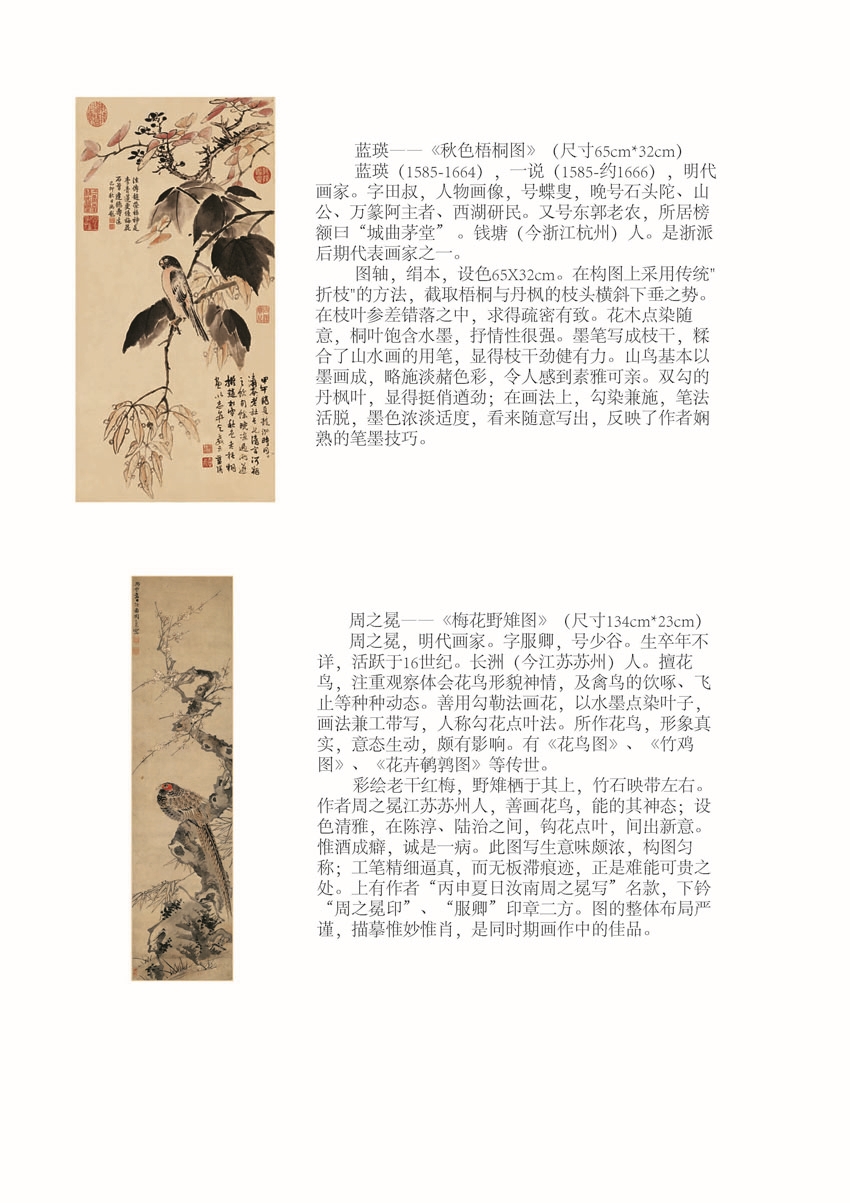 蓝瑛——《秋色梧桐图》（尺寸65cm*32cm）
蓝瑛（1585-1664），一说（1585-约1666），明代
画家。字田叔，人物画像，号蝶叟，晚号石头陀、山
公、万篆阿主者、西湖研民。又号东郭老农，所居榜
额曰“城曲茅堂” 。钱塘（今浙江杭州）人。是浙派
后期代表画家之一。
图轴，绢本，设色65X32cm。在构图上采用传统"
折枝"的方法，截取梧桐与丹枫的枝头横斜下垂之势。
在枝叶参差错落之中，求得疏密有致。花木点染随
意，桐叶饱含水墨，抒情性很强。墨笔写成枝干，糅
合了山水画的用笔，显得枝干劲健有力。山鸟基本以
墨画成，略施淡赭色彩，令人感到素雅可亲。双勾的
丹枫叶，显得挺俏遒劲；在画法上，勾染兼施，笔法
活脱，墨色浓淡适度，看来随意写出，反映了作者娴
熟的笔墨技巧。
周之冕——《梅花野雉图》（尺寸134cm*23cm）
周之冕，明代画家。字服卿，号少谷。生卒年不
详，活跃于16世纪。长洲（今江苏苏州）人。擅花
鸟，注重观察体会花鸟形貌神情，及禽鸟的饮啄、飞
止等种种动态。善用勾勒法画花，以水墨点染叶子，
画法兼工带写，人称勾花点叶法。所作花鸟，形象真
实，意态生动，颇有影响。有《花鸟图》、《竹鸡
图》、《花卉鹌鹑图》等传世。
彩绘老干红梅，野雉栖于其上，竹石映带左右。
作者周之冕江苏苏州人，善画花鸟，能的其神态；设
色清雅，在陈淳、陆治之间，钩花点叶，间出新意。
惟酒成癖，诚是一病。此图写生意味颇浓，构图匀
称；工笔精细逼真，而无板滞痕迹，正是难能可贵之
处。上有作者“丙申夏日汝南周之冕写”名款，下钤
“周之冕印”、“服卿”印章二方。图的整体布局严
谨，描摹惟妙惟肖，是同时期画作中的佳品。